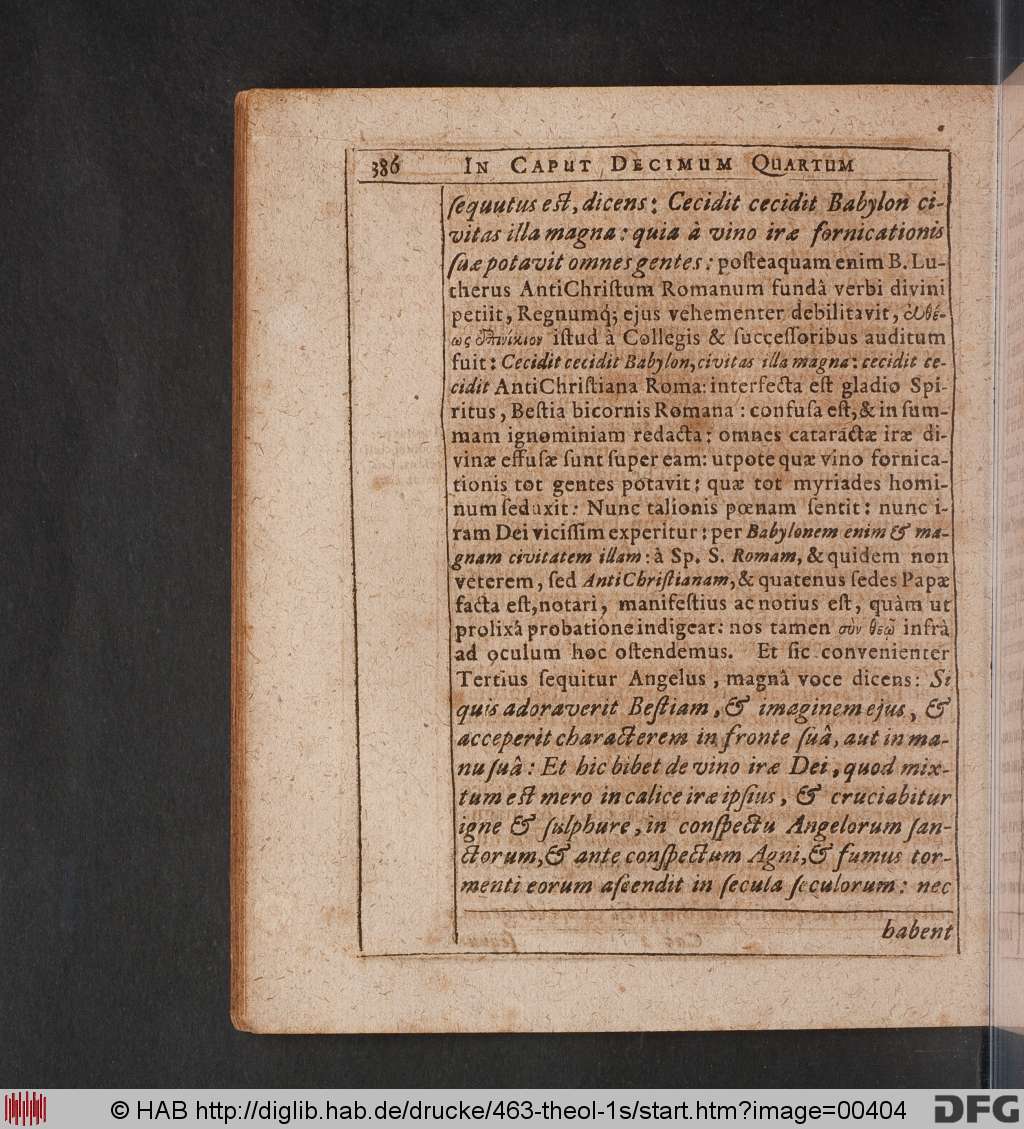 386 IN CAPUT DECIMUM QUARTUM
ſequutus eſt, dicens: Cecidit cecidit Babylon ci-
vitas illa magna: quia à vino iræ fornicationis
ſuæ potavit omnes gentes: poſteaquam enim B. Lu-
therus AntiChriſtum Romanum fundâ verbi divini
petiit, Regnumq́; ejus vehementer debilitavit, ἐυθέ-
ως ἐπινίκιον iſtud à Collegis & ſucceſſoribus auditum
fuit: Cecidit cecidit Babylon, civitas illa magna: cecidit ce-
cidit AntiChriſtiana Roma: interfecta eſt gladio Spi-
ritus, Beſtia bicornis Romana: confuſa eſt, & in ſum-
mam ignominiam redacta: omnes cataractæ iræ di-
vinæ effuſæ ſunt ſuper eam: utpote quæ vino fornica-
tionis tot gentes potavit: quæ tot myriades homi-
num ſeduxit: Nunc talionis pœnam ſentit: nunc i-
ram Dei viciſſim experitur: per Babylonem enim & ma-
gnam civitatem illam: à Sp. S. Romam, & quidem non
veterem, ſed AntiChriſtianam, & quatenus ſedes Papæ
facta eſt, notari, manifeſtius ac notius eſt, quàm ut
prolixâ probatione indigeat: nos tamen σὺν θεῷ infrà
ad oculum hoc oſtendemus. Et ſic convenienter
Tertius ſequitur Angelus, magnâ voce dicens: Si
quis adoraverit Beſtiam, & imaginem ejus, &
acceperit characterem in fronte ſuâ, aut in ma-
nu ſuâ: Et hic bibet de vino iræ Dei, quod mix-
tum eſt mero in calice iræ ipſius, & cruciabitur
igne & ſulphure, in conſpectu Angelorum ſan-
ctorum, & ante conſpectum Agni, & fumus tor-
menti eorum aſcendit in ſecula ſeculorum: nec
habent
© HAB http://diglib.hab.de/drucke/463-theol-1s/start.htm?image=00404 DFG